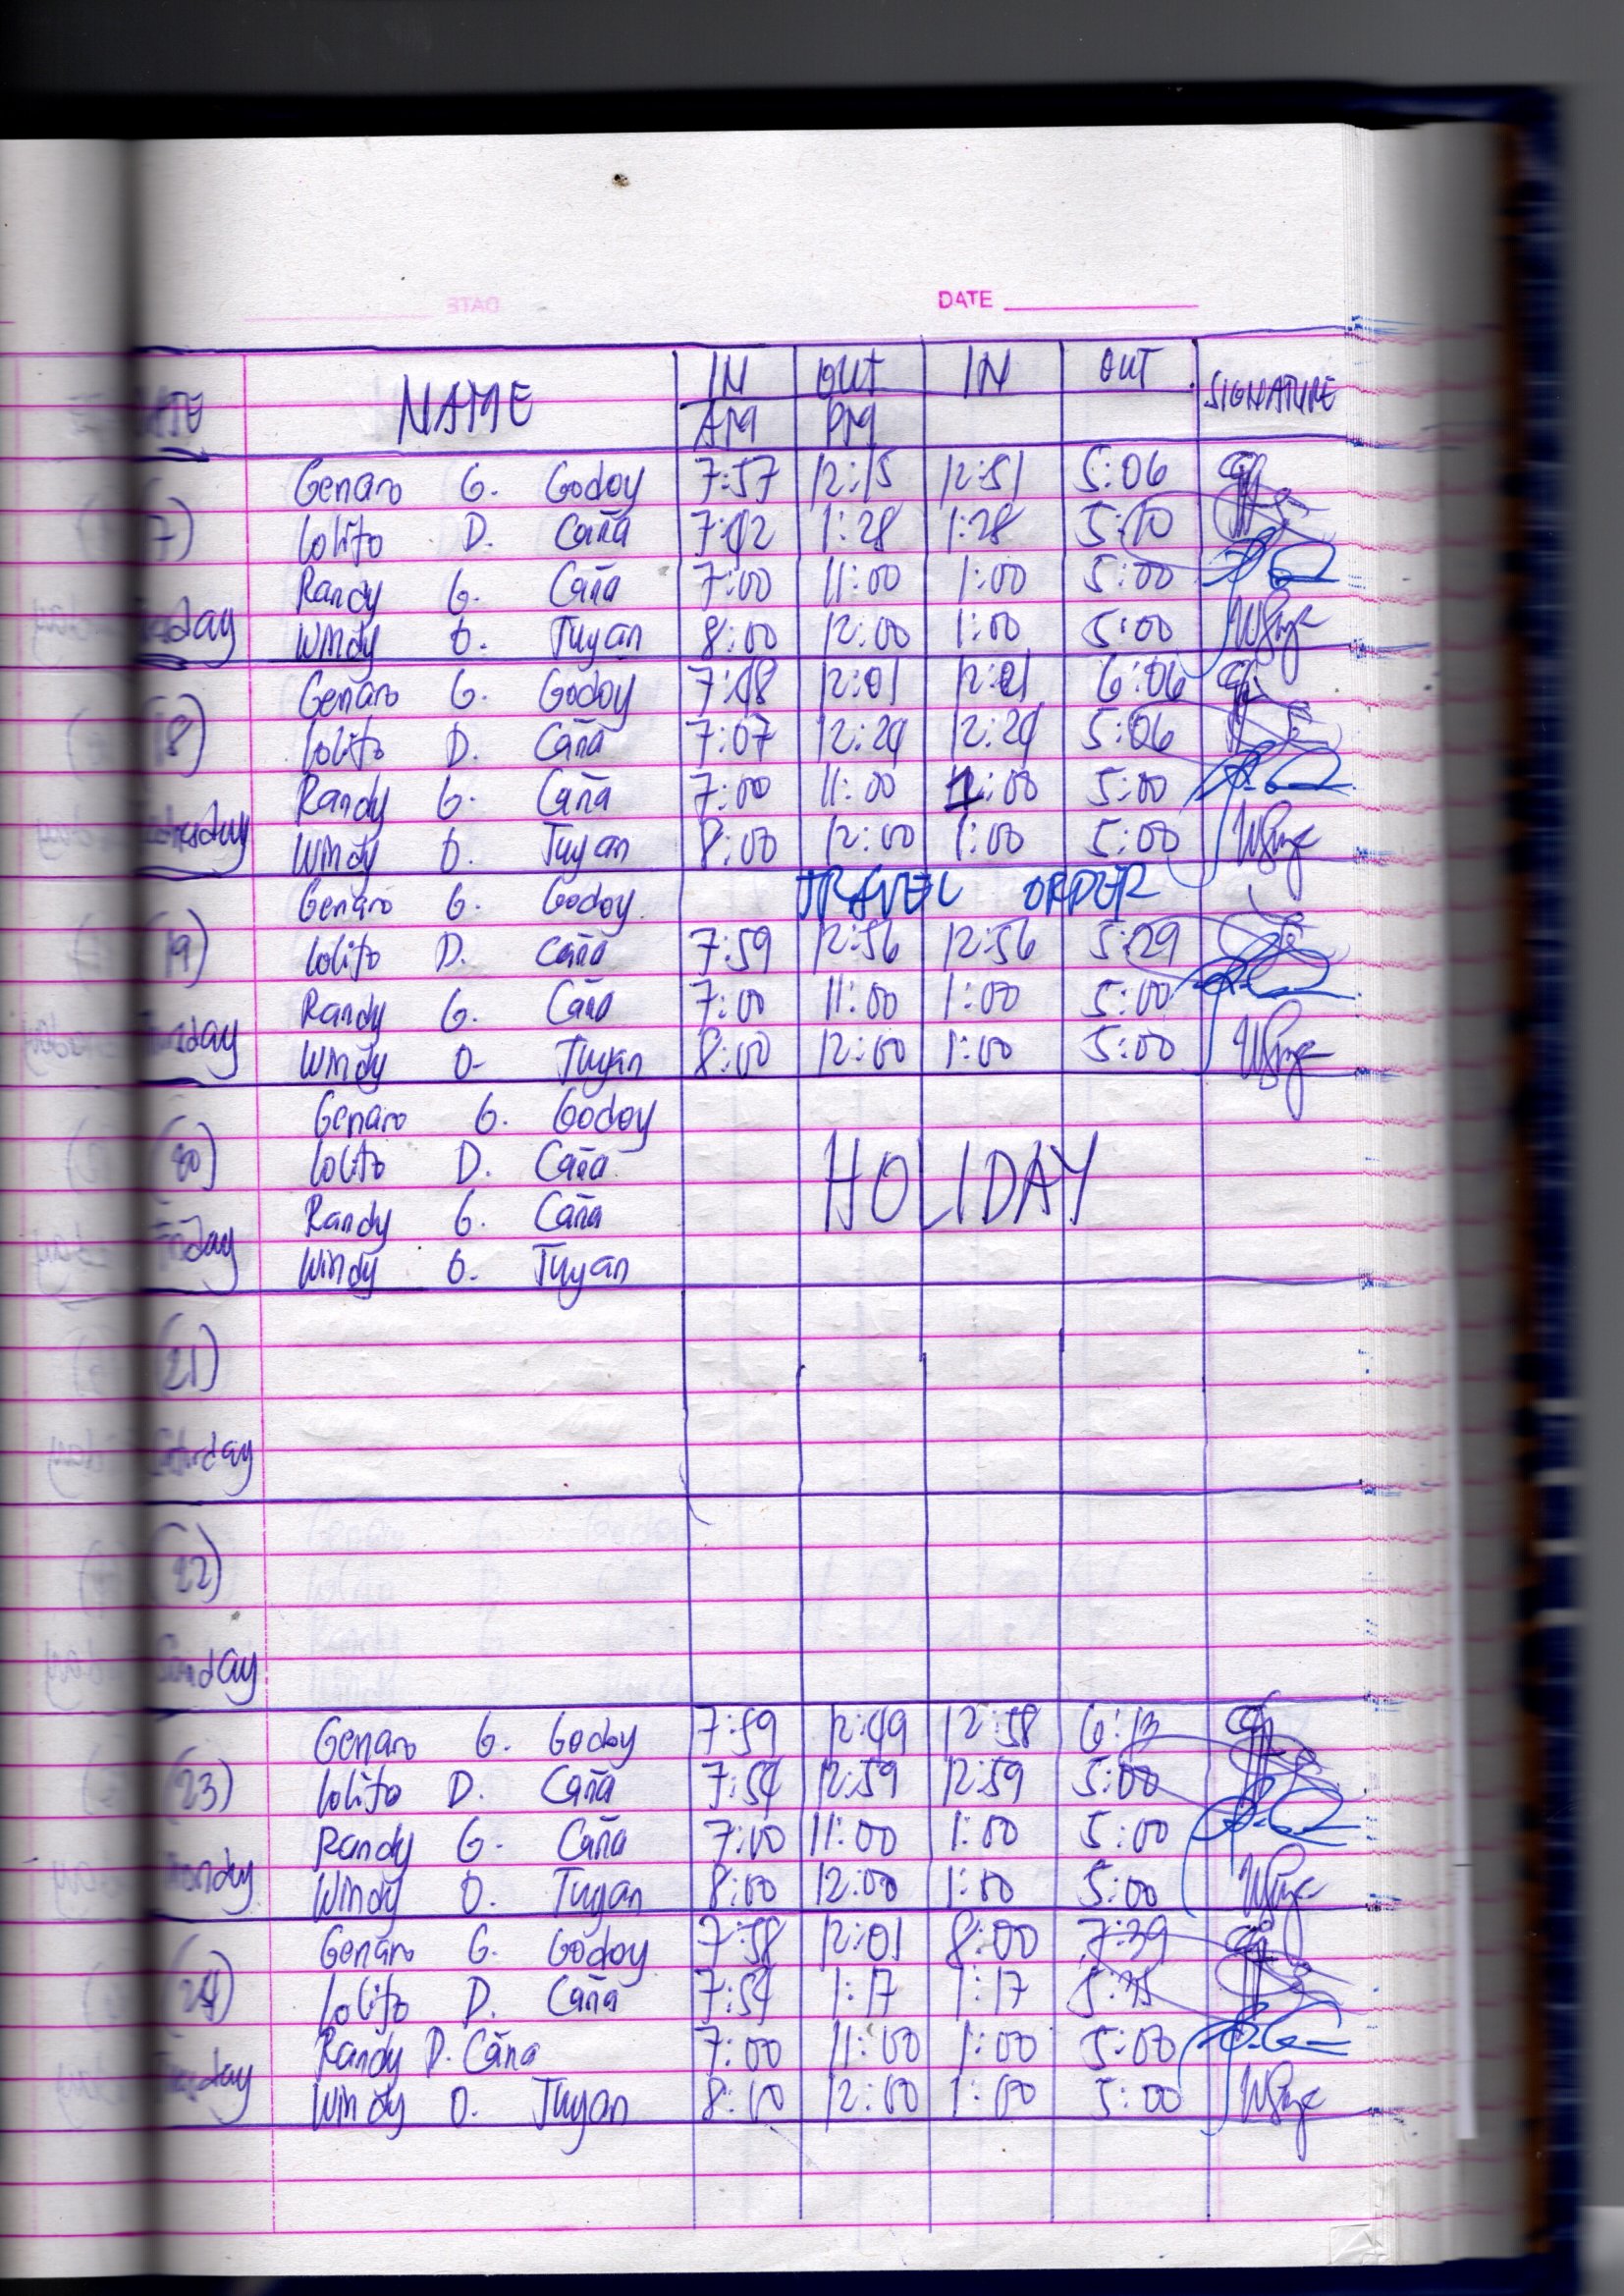 DATE
DATE NAME IN OUT IN OUT SIGNATURE
AM PM
Genaro G. Godoy 7:57 12:15 12:51 5:06
(17) Lolito D. Caña 7:42 1:28 1:28 5:10
Randy G. Caña 7:00 11:00 1:00 5:00
Windy O. Tuyan 8:00 12:00 1:00 5:00
Genaro G. Godoy 7:48 12:01 12:01 6:06
(18) Lolito D. Caña 7:07 12:24 12:24 5:06
Randy G. Caña 7:00 11:00 1:00 5:00
Windy O. Tuyan 8:00 12:00 1:00 5:00
Genaro G. Godoy TRAVEL ORDER
(19) Lolito D. Caña 7:59 12:56 12:56 5:29
Randy G. Caña 7:00 11:00 1:00 5:00
Windy O. Tuyan 8:00 12:00 1:00 5:00
Genaro G. Godoy
(20) Lolito D. Caña HOLIDAY
Randy G. Caña
Friday Windy O. Tuyan
(21)
Saturday
(22)
Sunday
Genaro G. Godoy 7:59 12:49 12:58 6:13
(23) Lolito D. Caña 7:54 12:59 12:59 5:00
Randy G. Caña 7:00 11:00 1:00 5:00
Monday Windy O. Tuyan 8:00 12:00 1:00 5:00
Genaro G. Godoy 7:58 12:01 8:00 7:39
(24) Lolito D. Caña 7:54 1:17 1:17
Randy D. Caña 7:00 11:00 1:00 5:00
Windy O. Tuyan 8:00 12:00 1:00 5:00